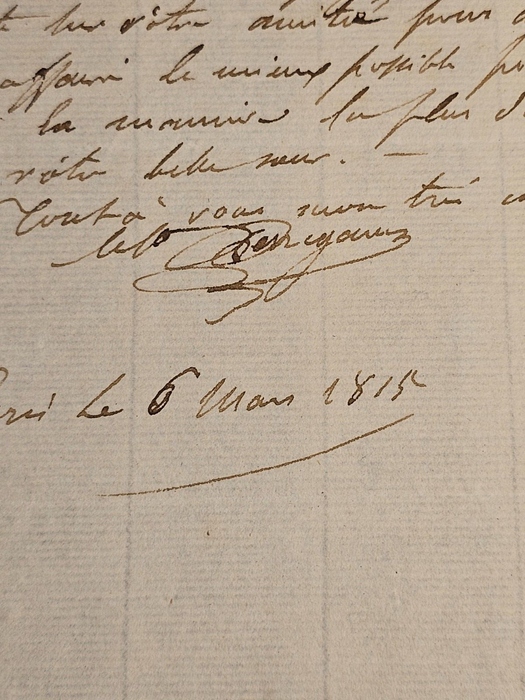 sur vôtre amitié pour
affaire le mieux possible
la manière la plus
vôtre belle soeur. —
Tout à vous mon trés
le 6 Mars 1815